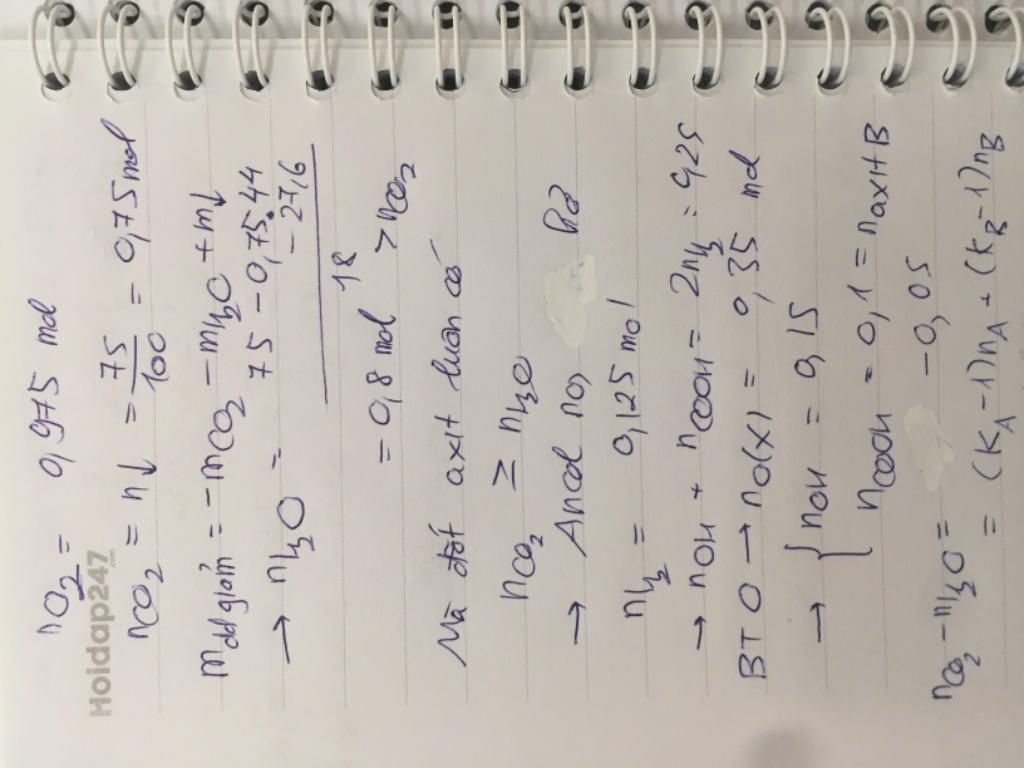 nO₂ = 0,975 mol
Hoidap247.com
nCO₂ = n↓ = 75/100 = 0,75 mol
m dd giảm = -mCO₂ - mH₂O + m↓
→ nH₂O = (75 - 0,75.44 - 27,6)/18
= 0,8 mol > nCO₂
Mà đốt axit luôn có
nCO₂ ≥ nH₂O
→ Ancol no, hở
nH₂ = 0,125 mol
→ nOH + nCOOH = 2nH₂ = 0,25
BT O → nO(X) = 0,35 mol
→ { nOH = 0,15
nCOOH = 0,1 = naxit B
nCO₂ - nH₂O = -0,05
= (kA - 1)nA + (kB - 1)nB